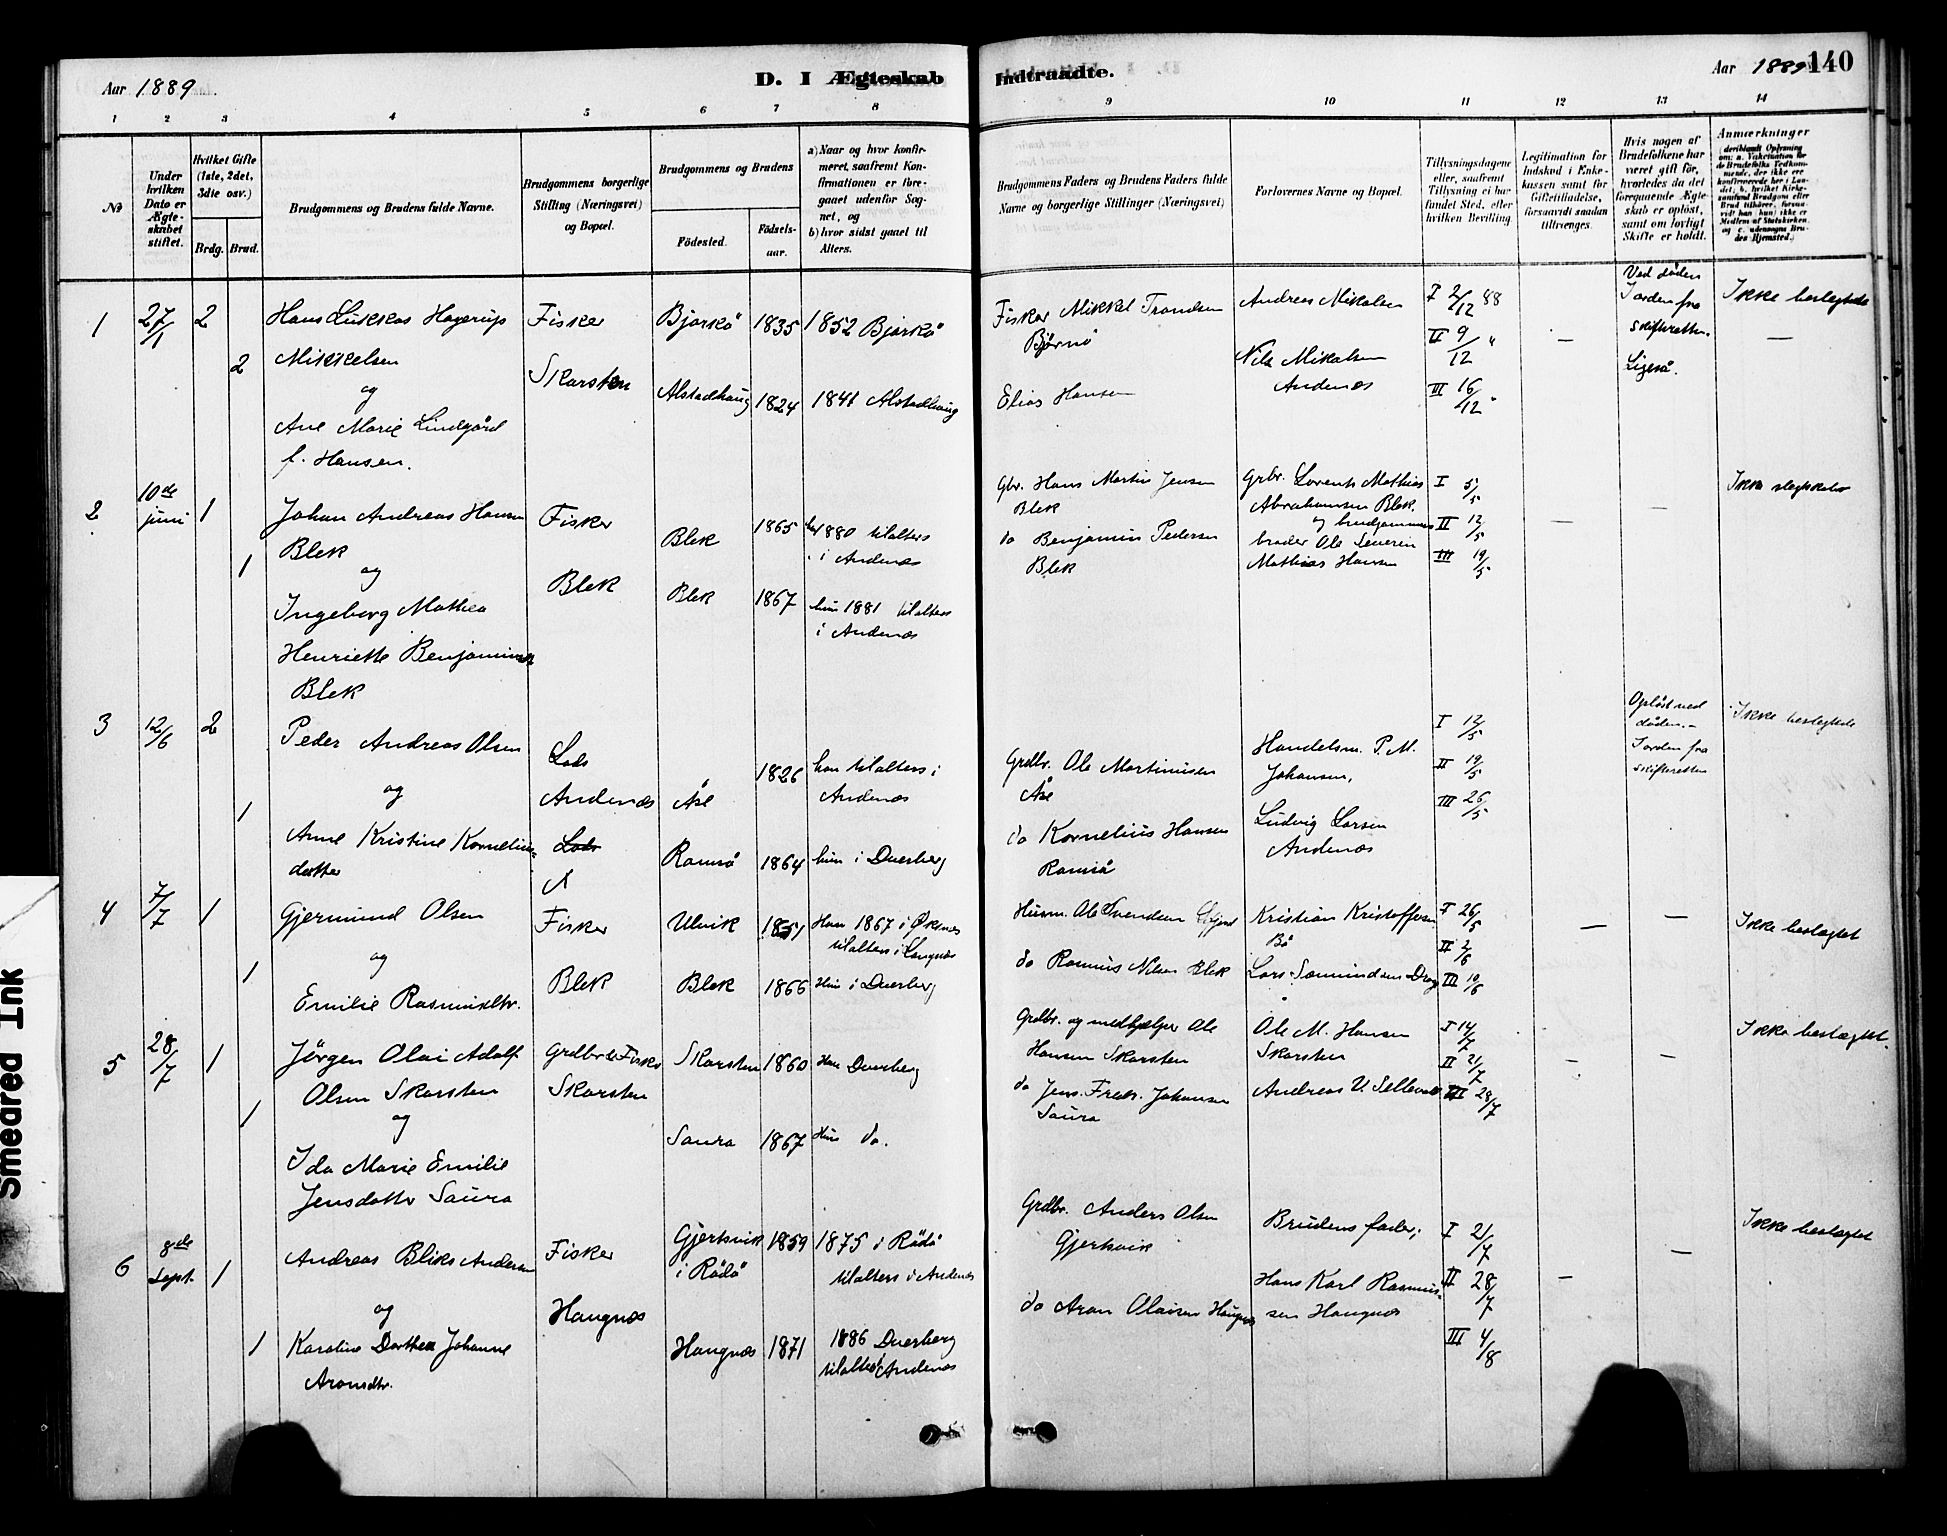 Aar 1889
D. I Ægteskab
Indtraadte.
Aar 1889
140
1 2 3 4 5 6 7 8 9 10 11 12 13 14
No
Under hvilken Dato er Ægteskabet stiftet.
Hvilket Gifte (1ste, 2det, 3die osv.)
Brdg. Brud.
Brudgommens og Brudens fulde Navne.
Brudgommens borgerlige Stilling (Næringsvei) og Bopæl.
Brudgommens og Brudens
Födested.
Födselsaar.
a) Naar og hvor konfirmeret, saafremt Konfirmationen er foregaaet udenfor Sognet, og
b) hvor sidst gaaet til Alters.
Brudgommens Faders og Brudens Faders fulde Navne og borgerlige Stillinger (Næringsvei)
Forlovernes Navne og Bopæl.
Tillysningsdagene eller, saafremt Tillysning ei har fundet Sted, efter hvilken Bevilling
Legitimation for Indskud i Enkekassen samt for Giftetilladelse, forsaavidt saadan tiltrænges.
Hvis nogen af Brudefolkene har været gift för, hvorledes da det foregaaende Ægteskab er oplöst, samt om lovligt Skifte er holdt.
Anmærkninger
1
27/1
2
2
Hans Lukkas Hagerup
Mikkelsen
og
Ane Marie Lindgård
f. Hansen.
Fisker
Skarsten
Bjarkö 1835 1852 Bjarkö
Alstadhaug 1824 1841 Alstadhaug
Fisker Mikkel Trondsen
Elias Hansen
Andreas Mikalsen
Nils Mikalsen
Andenæs
I 2/12 88
II 9/12 "
III 16/12 "
—
Ved döden
Jorden fra
skifteretten.
Ligeså.
Ikke beslegtede
—
2
10de
juni
1
1
Johan Andreas Hansen
Blek
og
Ingeborg Mathea
Henriette Benjamins
Blek
Fisker
Blek
Blek 1865 1880 tilalters
i Andenæs
Blek 1867 hun 1881 tilalters
i Andenæs
Gbr. Hans Martin Jensen
Blek
do Benjamin Pedersen
Blek
Grbr. Lorents Mathias
Abrahamsen Blek.
og brudgommens
broder Ole Severin
Mathias Hansen
I 5/5
II 12/5
III 19/5
—
—
Ikke slegtskab
3
12/6
2
1
Peder Andreas Olsen
og
Anne Kristine Kornelius-
datter
Lods
Andenæs
Lods
Åse 1826 han tilalters i
Andenæs
Ramså 1864 hun i Dverberg
Grdbr. Ole Martinusen
Åse
do Kornelius Hansen
Ramså
Handelsm. P. M.
Johansen,
Ludvig Larsen
Andenæs
I 12/5
II 19/5
III 26/5
Oplöst ved
döden.-
Jorden fra
skifteretten
Ikke beslegtede
4
7/7
1
1
Gjermund Olsen
og
Emilie Rasmusdtr.
Fisker
Blek
Ulvik 1851 Han 1867 i Øksnes
tilalters i Langnæs
Blek 1866 Hun i Dverberg
Husm. Ole Svendsen
do Rasmus Nilsen Blek
Kristian Kristoffersen
Bö
Lars Samundsen
I 26/5
II 2/6
III 10/6
—
—
Ikke beslægtet
5
28/7
1
1
Jörgen Olai Adolf
Olsen Skarsten
og
Ida Marie Emilie
Jensdatter Saura
Grdbr &amp; Fisker
Skarsten
Skarsten 1860 Han Dverberg
Saura 1867 Hun do.
Grdbr. og medhjelper Ole
Hansen Skarsten
do Jens Fredr. Johansen
Saura
Ole M. Hansen
Skarsten
Andreas U. Sellevold
I 14/7
II 21/7
III 28/7
—
—
Ikke beslægtet.
6
8de
Sept.
1
1
Andreas Bliks Andersen
og
Karoline Dorthea Johanne
Aronsdtr.
Fisker
Haugnæs
Gjertsvik 1859 1875 i Rödö
i Rödö tilalters i Andenæs
Haugnæs 1871 1886 Dverberg
tilalters i Andenæs
Grdbr. Anders Olsen
Gjertsvik
do Aron Olaisen Haugnæs
Brudens fader;
Hans Karl Rasmus-
sen Haugnæs
I 21/7
II 28/7
III 4/8
—
—
Ikke beslægtet
Smeared Ink